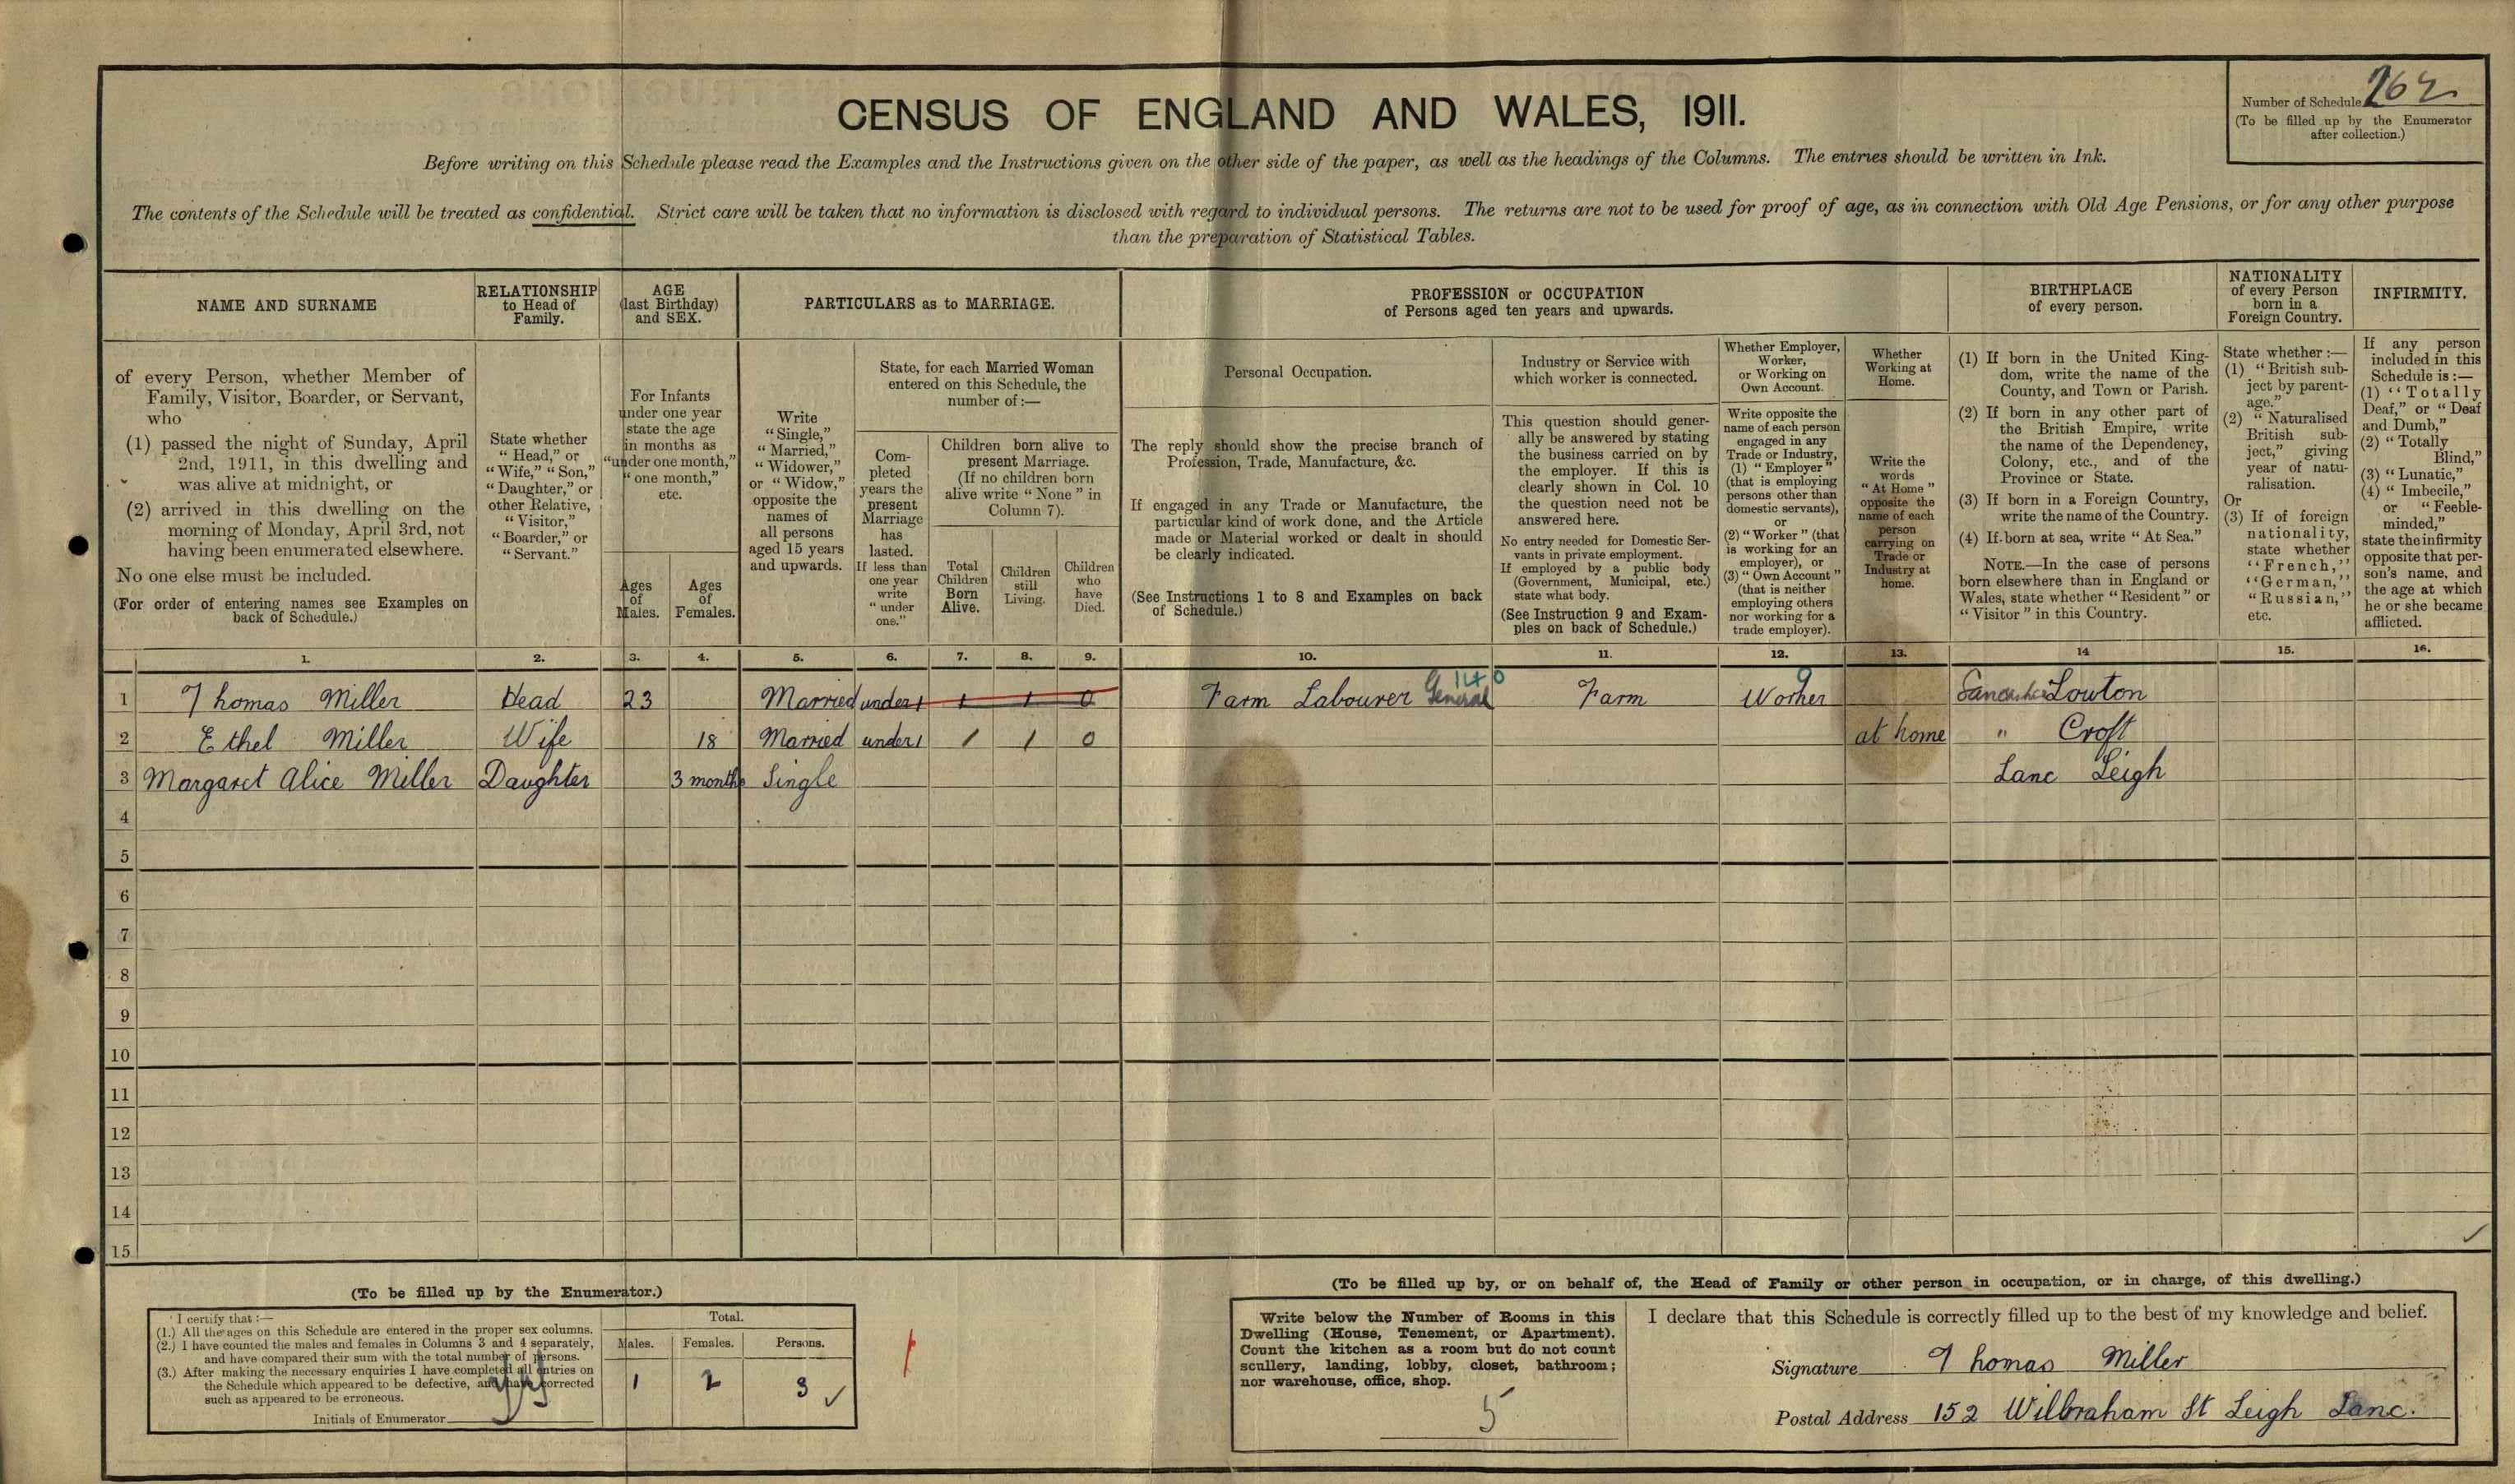 CENSUS OF ENGLAND AND WALES, 1911.
Number of Schedule 262
(To be filled up by the Enumerator
after collection.)
Before writing on this Schedule please read the Examples and the Instructions given on the other side of the paper, as well as the headings of the Columns. The entries should be written in Ink.
The contents of the Schedule will be treated as confidential. Strict care will be taken that no information is disclosed with regard to individual persons. The returns are not to be used for proof of age, as in connection with Old Age Pensions, or for any other purpose
than the preparation of Statistical Tables.
NAME AND SURNAME
of every Person, whether Member of
Family, Visitor, Boarder, or Servant,
who
(1) passed the night of Sunday, April
2nd, 1911, in this dwelling and
was alive at midnight, or
(2) arrived in this dwelling on the
morning of Monday, April 3rd, not
having been enumerated elsewhere.
No one else must be included.
(For order of entering names see Examples on
back of Schedule.)
RELATIONSHIP
to Head of
Family.
State whether
"Head," or
"Wife," "Son,"
"Daughter," or
other Relative,
"Visitor,"
"Boarder," or
"Servant."
AGE
(last Birthday)
and SEX.
For Infants
under one year
state the age
in months as
"under one month,"
"one month,"
etc.
Ages
of
Males.
Ages
of
Females.
PARTICULARS as to MARRIAGE.
Write
"Single,"
"Married,"
"Widower,"
or "Widow,"
opposite the
names of
all persons
aged 15 years
and upwards.
State, for each Married Woman
entered on this Schedule, the
number of:—
Com-
pleted
years the
present
Marriage
has
lasted.
If less than
one year
write
"under
one."
Children born alive to
present Marriage.
(If no children born
alive write "None" in
Column 7).
Total
Children
Born
Alive.
Children
still
Living.
Children
who
have
Died.
PROFESSION or OCCUPATION
of Persons aged ten years and upwards.
Personal Occupation.
The reply should show the precise branch of
Profession, Trade, Manufacture, &c.
If engaged in any Trade or Manufacture, the
particular kind of work done, and the Article
made or Material worked or dealt in should
be clearly indicated.
(See Instructions 1 to 8 and Examples on back
of Schedule.)
Industry or Service with
which worker is connected.
This question should gener-
ally be answered by stating
the business carried on by
the employer. If this is
clearly shown in Col. 10
the question need not be
answered here.
No entry needed for Domestic Ser-
vants in private employment.
If employed by a public body
(Government, Municipal, etc.)
state what body.
(See Instruction 9 and Exam-
ples on back of Schedule.)
Whether Employer,
Worker,
or Working on
Own Account.
Write opposite the
name of each person
engaged in any
Trade or Industry,
(1) "Employer"
(that is employing
persons other than
domestic servants),
or
(2) "Worker" (that
is working for an
employer), or
(3) "Own Account"
(that is neither
employing others
nor working for a
trade employer).
Whether
Working at
Home.
Write the
words
"At Home"
opposite the
name of each
person
carrying on
Trade or
Industry at
home.
BIRTHPLACE
of every person.
(1) If born in the United King-
dom, write the name of the
County, and Town or Parish.
(2) If born in any other part of
the British Empire, write
the name of the Dependency,
Colony, etc., and of the
Province or State.
(3) If born in a Foreign Country,
write the name of the Country.
(4) If born at sea, write "At Sea."
NOTE.—In the case of persons
born elsewhere than in England or
Wales, state whether "Resident" or
"Visitor" in this Country.
NATIONALITY
of every Person
born in a
Foreign Country.
State whether:—
(1) "British sub-
ject by parent-
age."
(2) "Naturalised
British sub-
ject," giving
year of natu-
ralisation.
Or
(3) If of foreign
nationality,
state whether
"French,"
"German,"
"Russian,"
etc.
INFIRMITY.
If any person
included in this
Schedule is:—
(1) "Totally
Deaf," or "Deaf
and Dumb,"
(2) "Totally
Blind,"
(3) "Lunatic,"
(4) "Imbecile,"
or "Feeble-
minded,"
state the infirmity
opposite that per-
son's name, and
the age at which
he or she became
afflicted.
1. 2. 3. 4. 5. 6. 7. 8. 9. 10. 11. 12. 13. 14 15. 16.
140
1 Thomas Miller Head 23 Married under 1 1 1 0 Farm Labourer General Farm Worker Lancashire Lowton
2 Ethel Miller Wife 18 Married under 1 1 1 0 at home " Croft
3 Margaret Alice Miller Daughter 3 months Single Lanc Leigh
4
5
6
7
8
9
10
11
12
13
14
15
(To be filled up by the Enumerator.)
I certify that:—
(1.) All the ages on this Schedule are entered in the proper sex columns.
(2.) I have counted the males and females in Columns 3 and 4 separately,
and have compared their sum with the total number of persons.
(3.) After making the necessary enquiries I have completed all entries on
the Schedule which appeared to be defective, and have corrected
such as appeared to be erroneous.
Initials of Enumerator
Total.
Males. Females. Persons.
1 2 3
(To be filled up by, or on behalf of, the Head of Family or other person in occupation, or in charge, of this dwelling.)
Write below the Number of Rooms in this
Dwelling (House, Tenement, or Apartment).
Count the kitchen as a room but do not count
scullery, landing, lobby, closet, bathroom;
nor warehouse, office, shop.
5
I declare that this Schedule is correctly filled up to the best of my knowledge and belief.
Signature Thomas Miller
Postal Address 152 Wilbraham St Leigh Lanc.